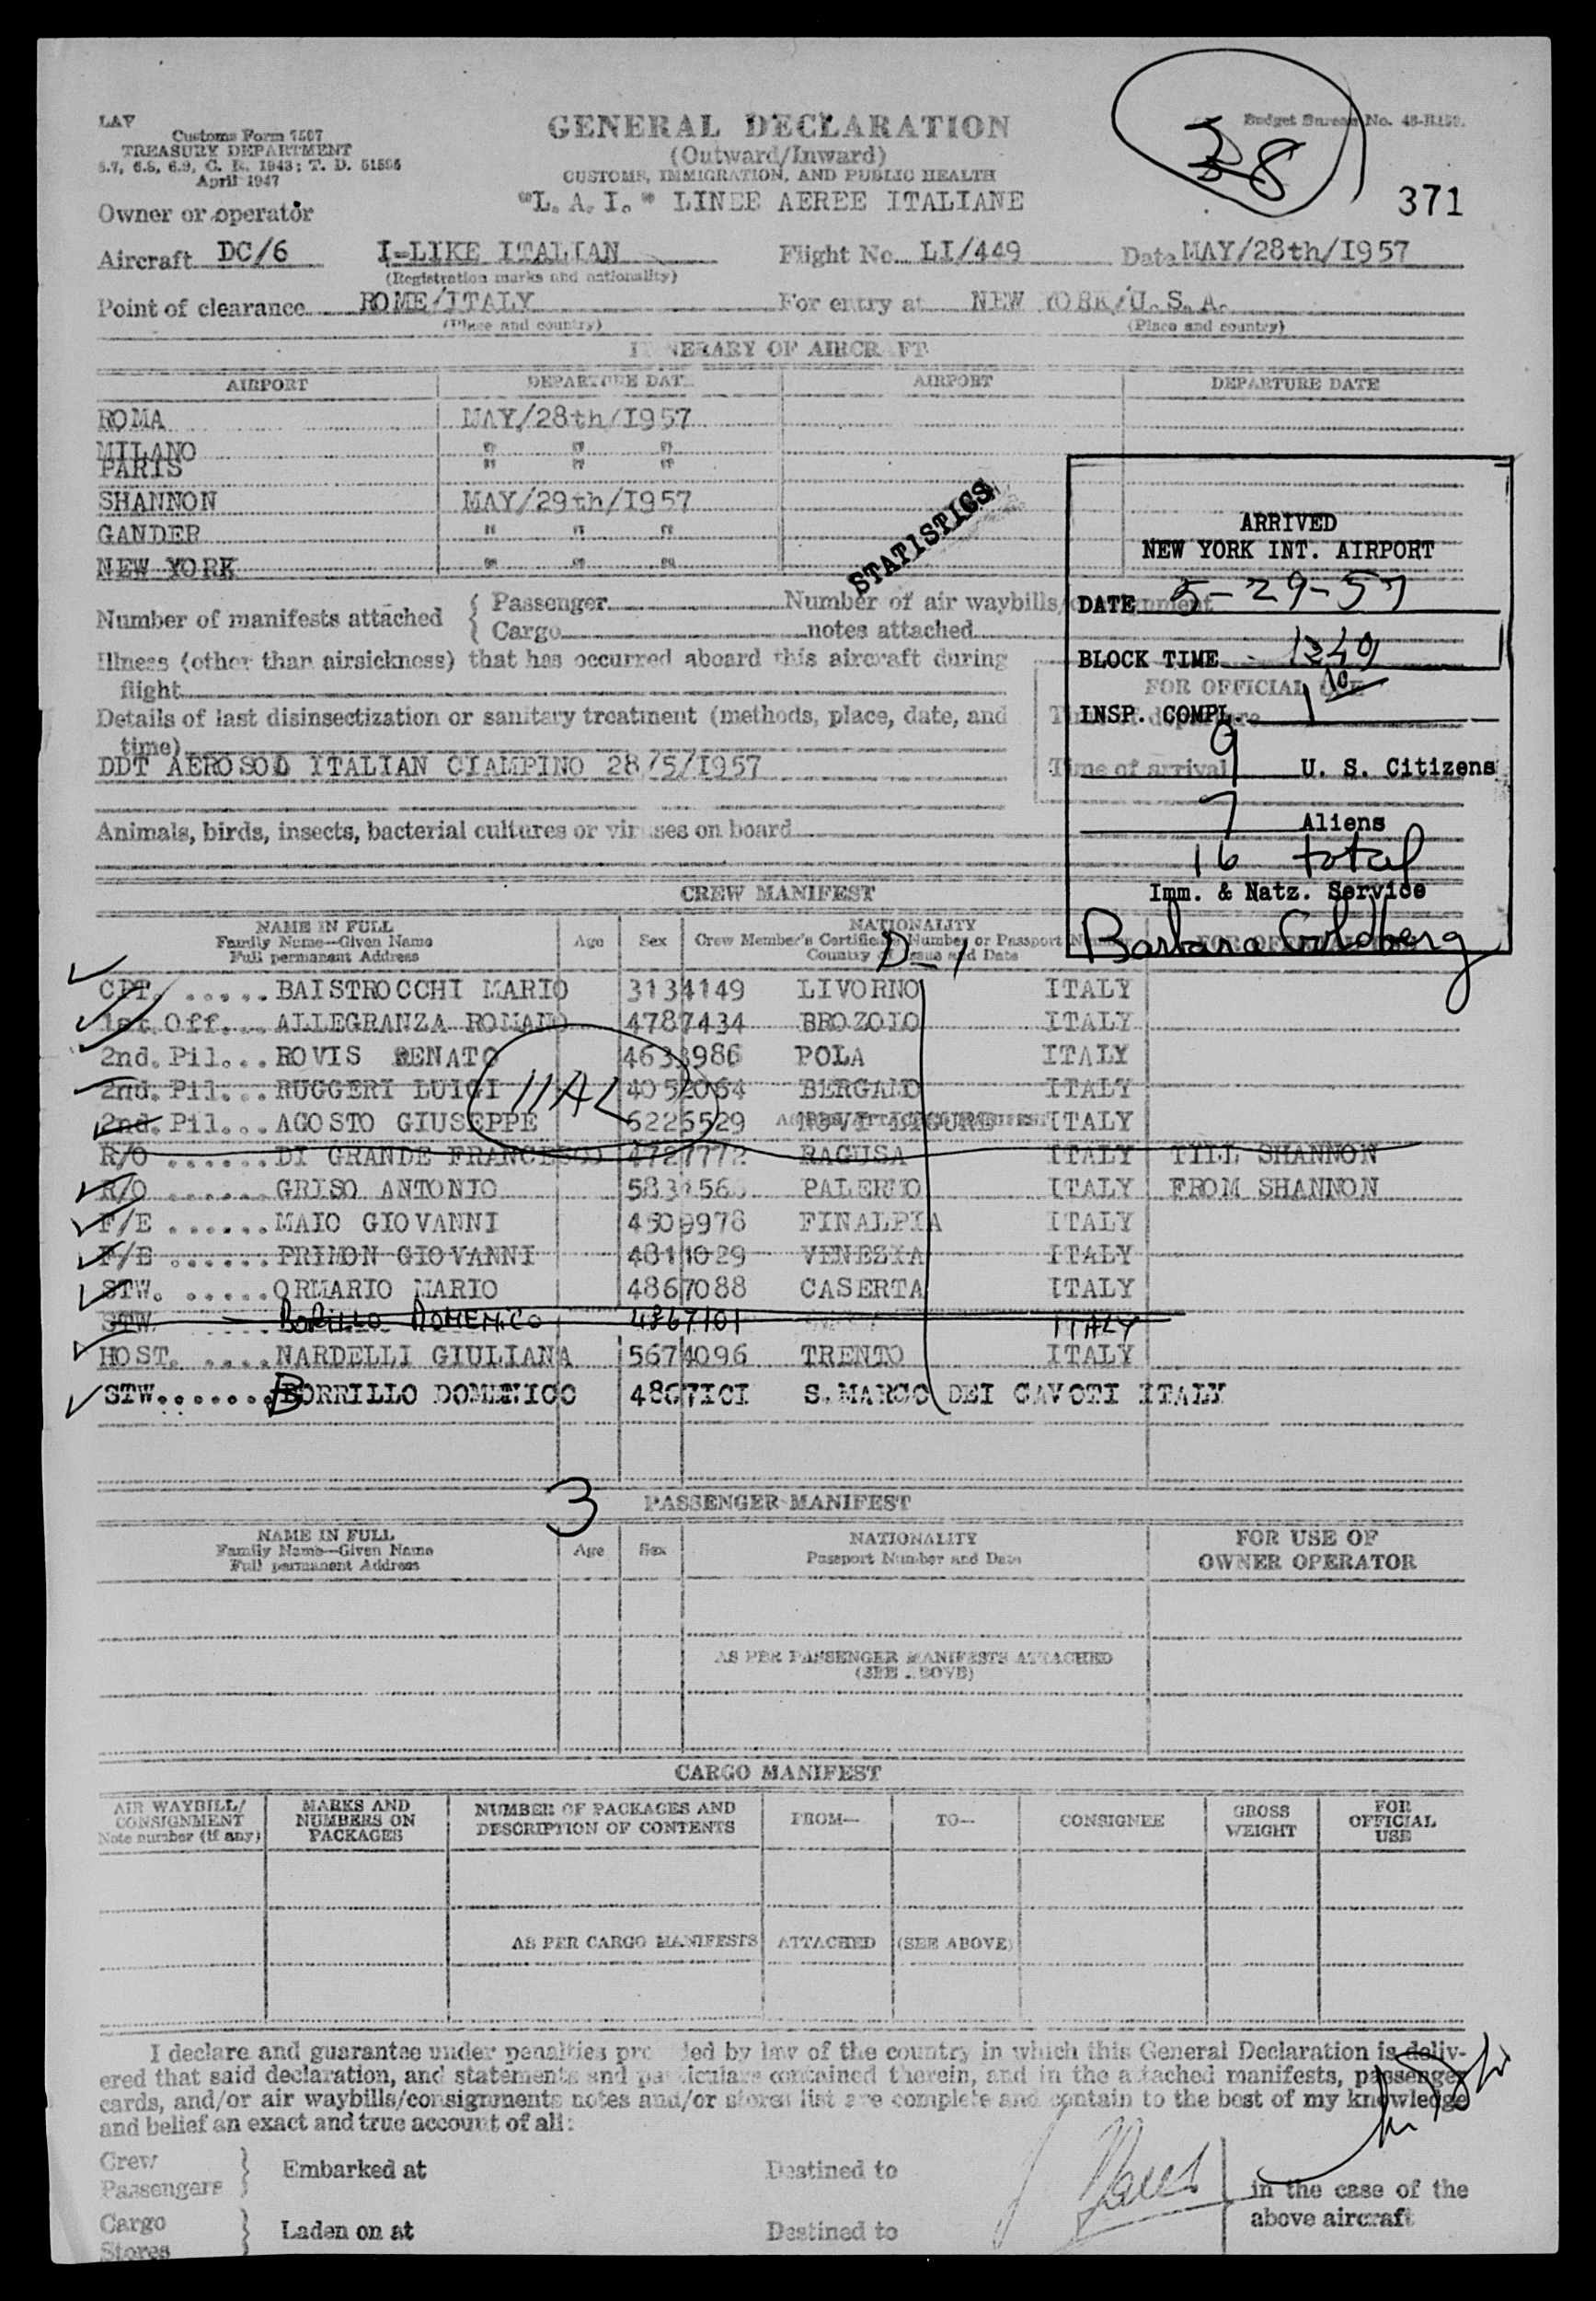 LAV
Customs Form 7507
TREASURY DEPARTMENT
April 1947
GENERAL DECLARATION
(Outward/Inward)
CUSTOMS, IMMIGRATION, AND PUBLIC HEALTH
"L. A. I." LINEE AEREE ITALIANE
Budget Bureau No.
38
371
Owner or operator
Aircraft DC/6 I-LIKE ITALIAN Flight No. LI/449 Date MAY/28th/I957
(Registration marks and nationality)
Point of clearance ROME/ITALY For entry at NEW YORK/U.S.A.
(Place and country) (Place and country)
ITINERARY OF AIRCRAFT
AIRPORT DEPARTURE DATE AIRPORT DEPARTURE DATE
ROMA MAY/28th/I957
MILANO " " "
PARIS " " "
SHANNON MAY/29th/I957
GANDER " " "
NEW YORK " " "
STATISTICS
ARRIVED
NEW YORK INT. AIRPORT
DATE 5-29-57
BLOCK TIME 1240
INSP. COMPL. 1 10
9 U. S. Citizens
7 Aliens
16 total
Imm. & Natz. Service
Barbara Goldberg
Number of manifests attached { Passenger Number of air waybills/
Cargo notes attached
Illness (other than airsickness) that has occurred aboard this aircraft during
flight
FOR OFFICIAL USE
Details of last disinsectization or sanitary treatment (methods, place, date, and
time)
Time of departure
DDT AEROSOL ITALIAN CIAMPINO 28/5/I957
Time of arrival
Animals, birds, insects, bacterial cultures or viruses on board
CREW MANIFEST
NAME IN FULL
Family Name—Given Name
Full permanent Address
Age Sex
NATIONALITY
Crew Member's Certificate Number or Passport Number
Country of Issue and Date
FOR OFFICIAL
D-1
CPT. ..... BAISTROCCHI MARIO 3134149 LIVORNO ITALY
1st.Off... ALLEGRANZA ROMANO 4787434 BROZOLO ITALY
2nd.Pil... ROVIS RENATO 4633986 POLA ITALY
2nd.Pil... RUGGERI LUIGI 4052064 BERGAMO ITALY
2nd.Pil... AGOSTO GIUSEPPE 6226529 NOVI LIGURE ITALY
R/O ...... DI GRANDE FRANCESCO 4727772 RAGUSA ITALY TILL SHANNON
R/O ...... GRISO ANTONIO PALERMO ITALY FROM SHANNON
F/E ...... MAIO GIOVANNI 4509978 FINALPIA ITALY
F/E ...... PRIMON GIOVANNI 4811029 VENEZIA ITALY
STW. ..... ORMARIO MARIO 4867088 CASERTA ITALY
STW BORILLO DOMENICO 4867101 ITALY
HOST. .... NARDELLI GIULIANA 5674096 TRENTO ITALY
STW....... BORRILLO DOMENICO 4867ICI S.MARCO DEI CAVOTI ITALY
3
PASSENGER MANIFEST
NAME IN FULL
Family Name—Given Name
Full permanent Address
Age Sex
NATIONALITY
Passport Number and Date
FOR USE OF
OWNER OPERATOR
AS PER PASSENGER MANIFESTS ATTACHED
(SEE ABOVE)
CARGO MANIFEST
AIR WAYBILL/
CONSIGNMENT
Note number (if any)
MARKS AND
NUMBERS ON
PACKAGES
NUMBER OF PACKAGES AND
DESCRIPTION OF CONTENTS
FROM— TO— CONSIGNEE
GROSS
WEIGHT
FOR
OFFICIAL
USE
AS PER CARGO MANIFESTS ATTACHED (SEE ABOVE)
I declare and guarantee under penalties provided by law of the country in which this General Declaration is deliv-
ered that said declaration, and statements and particulars contained therein, and in the attached manifests, passenger
cards, and/or air waybills/consignments notes and/or stores list are complete and contain to the best of my knowledge
and belief an exact and true account of all:
Crew
Passengers } Embarked at Destined to in the case of the
Cargo above aircraft
Stores } Laden on at Destined to